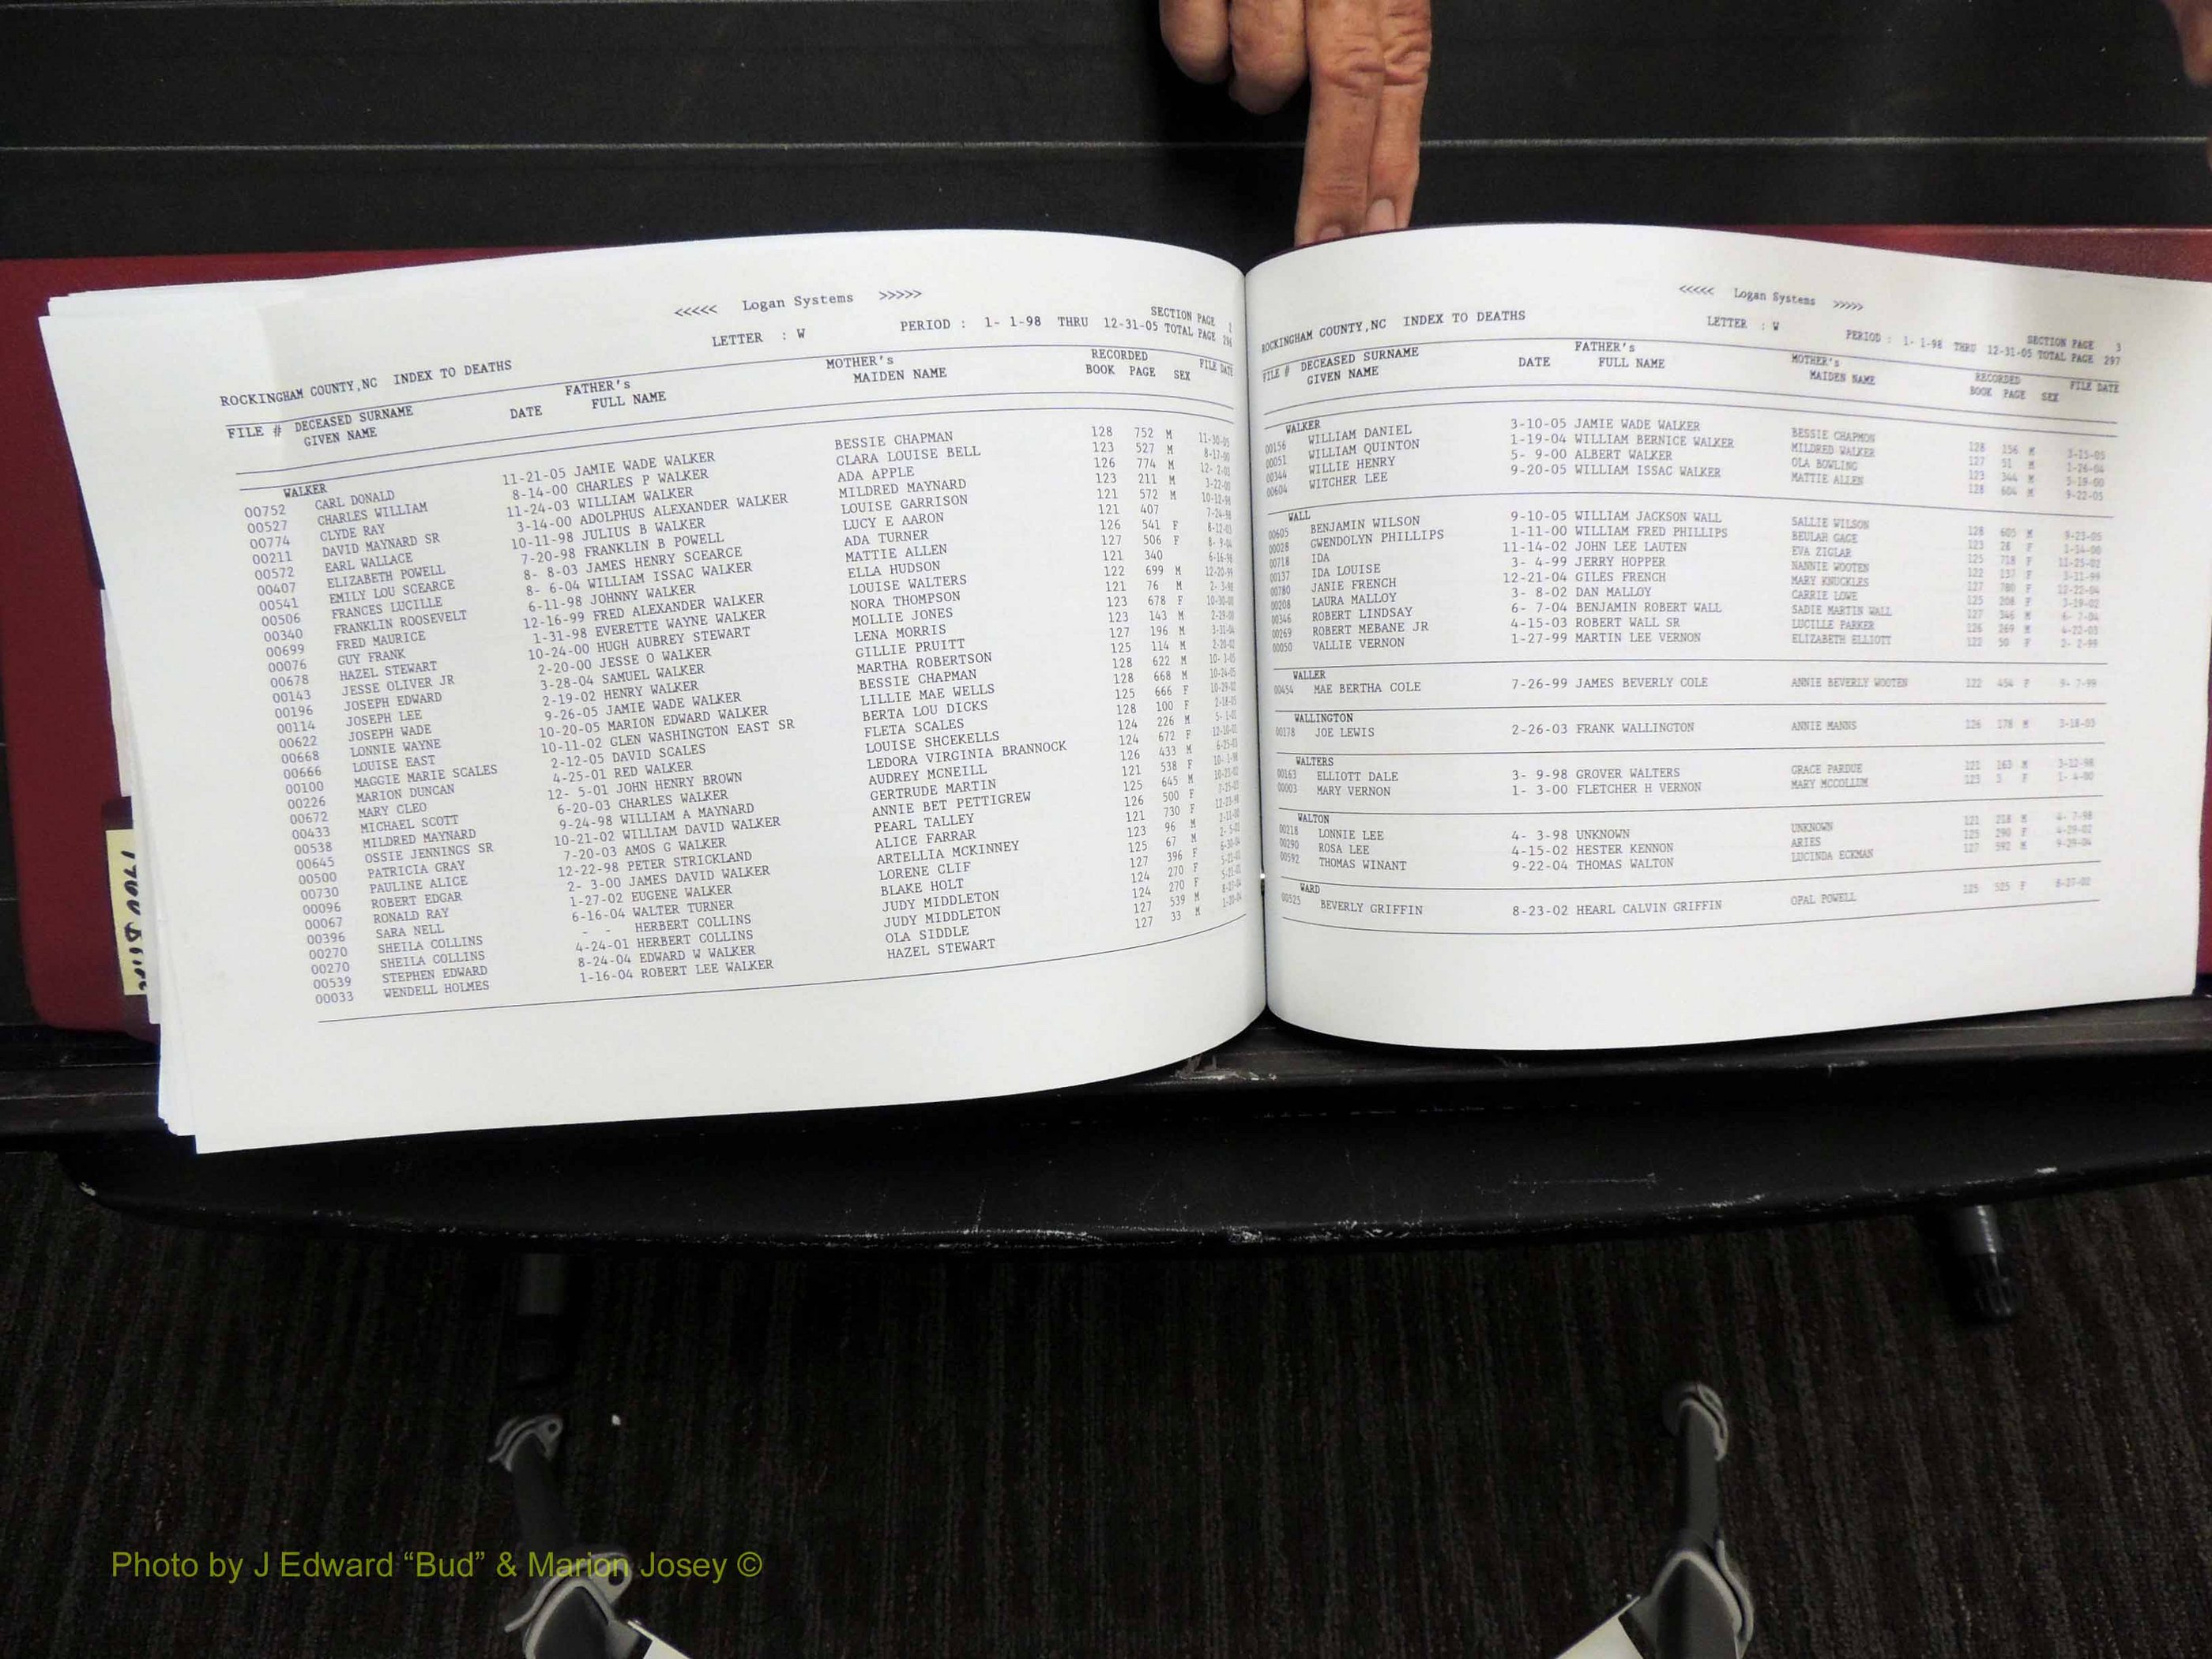 <<<<< Logan Systems >>>>>
ROCKINGHAM COUNTY,NC INDEX TO DEATHS LETTER : W PERIOD : 1- 1-98 THRU 12-31-05 SECTION PAGE TOTAL PAGE
FILE # DECEASED SURNAME GIVEN NAME DATE FATHER's FULL NAME MOTHER's MAIDEN NAME RECORDED BOOK PAGE SEX FILE DATE
WALKER
00752 CARL DONALD 11-21-05 JAMIE WADE WALKER BESSIE CHAPMAN 128 752 M 11-30-05
00527 CHARLES WILLIAM 8-14-00 CHARLES P WALKER CLARA LOUISE BELL 123 527 M 8-17-00
00774 CLYDE RAY 11-24-03 WILLIAM WALKER ADA APPLE 126 774 M 12- 2-03
00211 DAVID MAYNARD SR 3-14-00 ADOLPHUS ALEXANDER WALKER MILDRED MAYNARD 123 211 M 3-22-00
00572 EARL WALLACE 10-11-98 JULIUS B WALKER LOUISE GARRISON 121 572 M 10-12-98
00407 ELIZABETH POWELL 7-20-98 FRANKLIN B POWELL LUCY E AARON 121 407 7-24-98
00541 EMILY LOU SCEARCE 8- 8-03 JAMES HENRY SCEARCE ADA TURNER 126 541 F 8-12-03
00506 FRANCES LUCILLE 8- 6-04 WILLIAM ISSAC WALKER MATTIE ALLEN 127 506 F 8- 9-04
00340 FRANKLIN ROOSEVELT 6-11-98 JOHNNY WALKER ELLA HUDSON 121 340 6-16-98
00699 FRED MAURICE 12-16-99 FRED ALEXANDER WALKER LOUISE WALTERS 122 699 M 12-20-99
00076 GUY FRANK 1-31-98 EVERETTE WAYNE WALKER NORA THOMPSON 121 76 M 2- 3-98
00678 HAZEL STEWART 10-24-00 HUGH AUBREY STEWART MOLLIE JONES 123 678 F 10-30-00
00143 JESSE OLIVER JR 2-20-00 JESSE O WALKER LENA MORRIS 123 143 M 2-29-00
00196 JOSEPH EDWARD 3-28-04 SAMUEL WALKER GILLIE PRUITT 127 196 M 3-31-04
00114 JOSEPH LEE 2-19-02 HENRY WALKER MARTHA ROBERTSON 125 114 M 2-20-02
00622 JOSEPH WADE 9-26-05 JAMIE WADE WALKER BESSIE CHAPMAN 128 622 M 10- 1-05
00668 LONNIE WAYNE 10-20-05 MARION EDWARD WALKER LILLIE MAE WELLS 128 668 M 10-24-05
00666 LOUISE EAST 10-11-02 GLEN WASHINGTON EAST SR BERTA LOU DICKS 125 666 F 10-29-02
00100 MAGGIE MARIE SCALES 2-12-05 DAVID SCALES FLETA SCALES 128 100 F 2-18-05
00226 MARION DUNCAN 4-25-01 RED WALKER LOUISE SHCEKELLS 124 226 M 5- 1-01
00672 MARY CLEO 12- 5-01 JOHN HENRY BROWN LEDORA VIRGINIA BRANNOCK 124 672 F 12-10-01
00433 MICHAEL SCOTT 6-20-03 CHARLES WALKER AUDREY MCNEILL 126 433 M 6-25-03
00538 MILDRED MAYNARD 9-24-98 WILLIAM A MAYNARD GERTRUDE MARTIN 121 538 F 10- 1-98
00645 OSSIE JENNINGS SR 10-21-02 WILLIAM DAVID WALKER ANNIE BET PETTIGREW 125 645 M 10-23-02
00500 PATRICIA GRAY 7-20-03 AMOS G WALKER PEARL TALLEY 126 500 F 7-25-03
00730 PAULINE ALICE 12-22-98 PETER STRICKLAND ALICE FARRAR 121 730 F 12-23-98
00096 ROBERT EDGAR 2- 3-00 JAMES DAVID WALKER ARTELLIA MCKINNEY 123 96 M 2-11-00
00067 RONALD RAY 1-27-02 EUGENE WALKER LORENE CLIF 125 67 M
00396 SARA NELL 6-16-04 WALTER TURNER BLAKE HOLT 127 396 F 6-30-04
00270 SHEILA COLLINS - - HERBERT COLLINS JUDY MIDDLETON 124 270 F
00270 SHEILA COLLINS 4-24-01 HERBERT COLLINS JUDY MIDDLETON 124 270 F
00539 STEPHEN EDWARD 8-24-04 EDWARD W WALKER OLA SIDDLE 127 539 M 8-27-04
00033 WENDELL HOLMES 1-16-04 ROBERT LEE WALKER HAZEL STEWART 127 33 M 1-20-04
<<<<< Logan Systems >>>>>
ROCKINGHAM COUNTY,NC INDEX TO DEATHS LETTER : W PERIOD : 1- 1-98 THRU 12-31-05 SECTION PAGE 3 TOTAL PAGE 297
FILE # DECEASED SURNAME GIVEN NAME DATE FATHER's FULL NAME MOTHER's MAIDEN NAME RECORDED BOOK PAGE SEX FILE DATE
WALKER
00156 WILLIAM DANIEL 3-10-05 JAMIE WADE WALKER BESSIE CHAPMON 128 156 M 3-15-05
00051 WILLIAM QUINTON 1-19-04 WILLIAM BERNICE WALKER MILDRED WALKER 127 51 M 1-26-04
00344 WILLIE HENRY 5- 9-00 ALBERT WALKER OLA BOWLING 123 344 M 5-19-00
00604 WITCHER LEE 9-20-05 WILLIAM ISSAC WALKER MATTIE ALLEN 128 604 M 9-22-05
WALL
00605 BENJAMIN WILSON 9-10-05 WILLIAM JACKSON WALL SALLIE WILSON 128 605 M 9-23-05
00028 GWENDOLYN PHILLIPS 1-11-00 WILLIAM FRED PHILLIPS BEULAH GAGE 123 28 F 1-14-00
00718 IDA 11-14-02 JOHN LEE LAUTEN EVA ZIGLAR 125 718 F 11-25-02
00137 IDA LOUISE 3- 4-99 JERRY HOPPER NANNIE WOOTEN 122 137 F 3-11-99
00780 JANIE FRENCH 12-21-04 GILES FRENCH MARY KNUCKLES 127 780 F 12-22-04
00208 LAURA MALLOY 3- 8-02 DAN MALLOY CARRIE LOWE 125 208 F 3-19-02
00346 ROBERT LINDSAY 6- 7-04 BENJAMIN ROBERT WALL SADIE MARTIN WALL 127 346 M 6- 7-04
00269 ROBERT MEBANE JR 4-15-03 ROBERT WALL SR LUCILLE PARKER 126 269 M 4-22-03
00050 VALLIE VERNON 1-27-99 MARTIN LEE VERNON ELIZABETH ELLIOTT 122 50 F 2- 2-99
WALLER
00454 MAE BERTHA COLE 7-26-99 JAMES BEVERLY COLE ANNIE BEVERLY WOOTEN 122 454 F 9- 7-99
WALLINGTON
00178 JOE LEWIS 2-26-03 FRANK WALLINGTON ANNIE MANNS 126 178 M 3-18-03
WALTERS
00163 ELLIOTT DALE 3- 9-98 GROVER WALTERS GRACE PARDUE 121 163 M 3-12-98
00003 MARY VERNON 1- 3-00 FLETCHER H VERNON MARY MCCOLLUM 123 3 F 1- 4-00
WALTON
00218 LONNIE LEE 4- 3-98 UNKNOWN UNKNOWN 121 218 M 4- 7-98
00290 ROSA LEE 4-15-02 HESTER KENNON ARIES 125 290 F 4-29-02
00592 THOMAS WINANT 9-22-04 THOMAS WALTON LUCINDA ECKMAN 127 592 M 9-29-04
WARD
00525 BEVERLY GRIFFIN 8-23-02 HEARL CALVIN GRIFFIN OPAL POWELL 125 525 F 8-27-02
Photo by J Edward “Bud” & Marion Josey ©